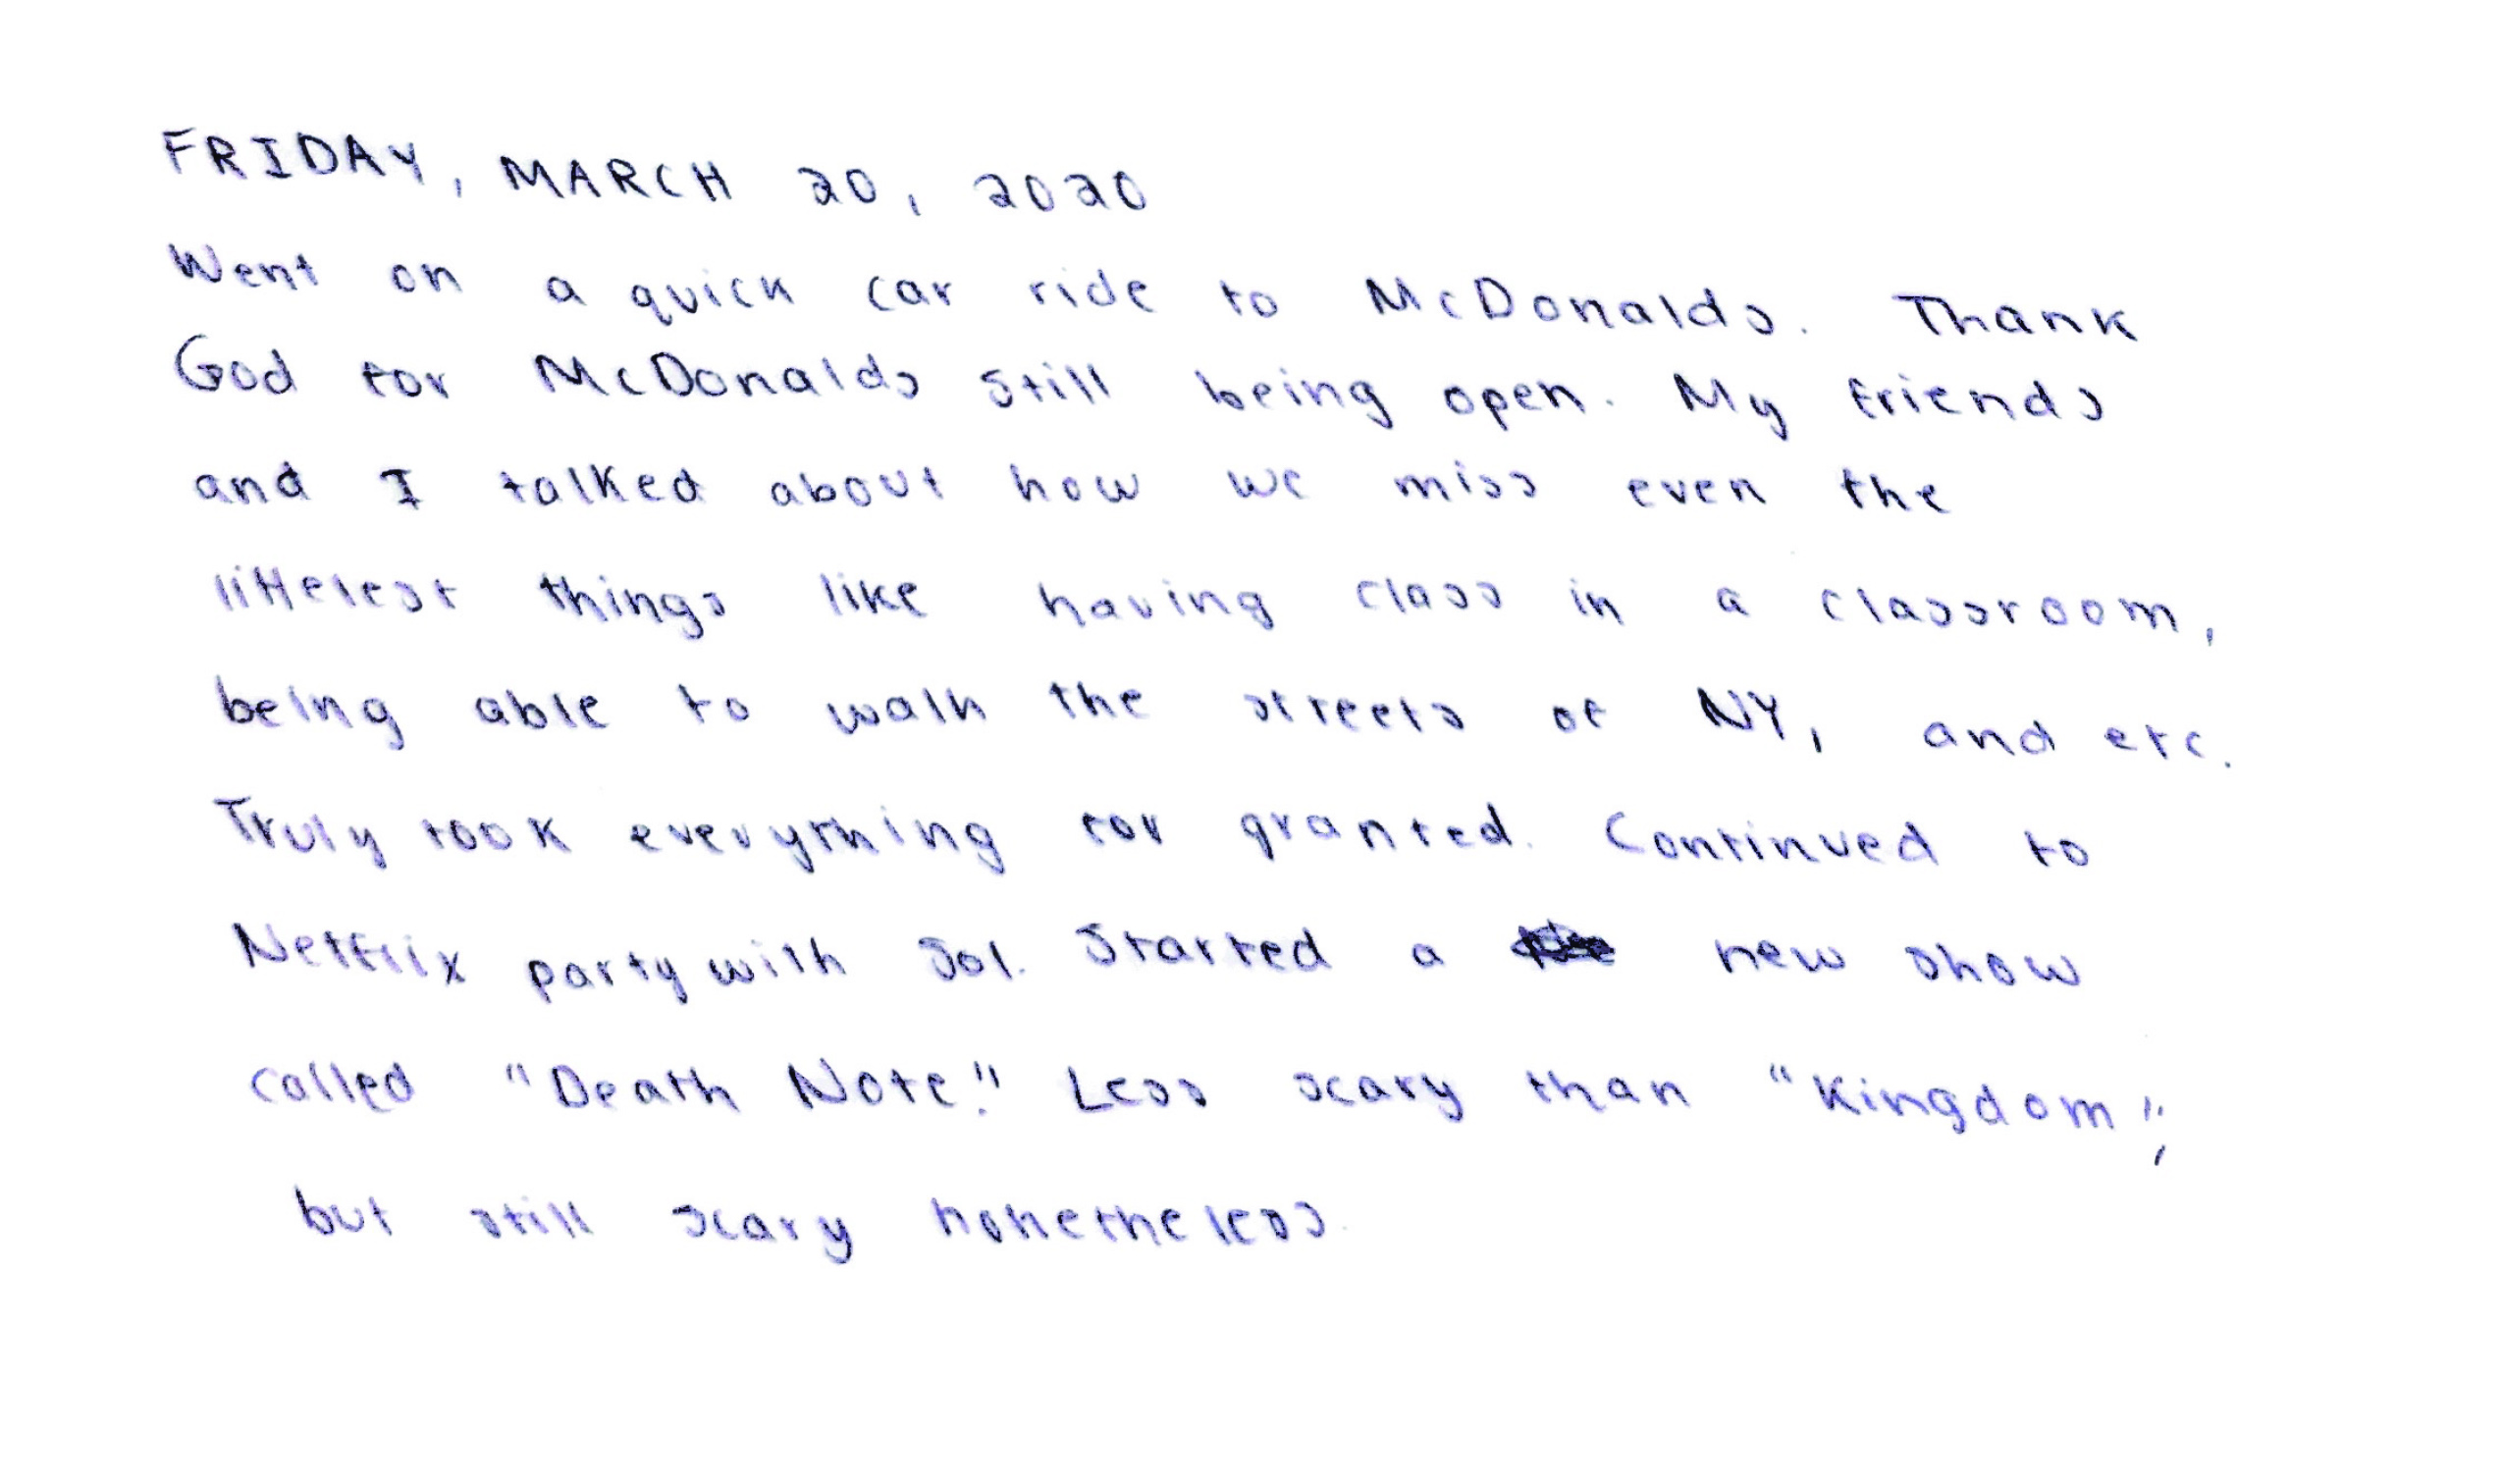 FRIDAY, MARCH 20, 2020
Went on a quick car ride to McDonalds. Thank
God for McDonalds still being open. My friends
and I talked about how we miss even the
littelest things like having class in a classroom,
being able to walk the streets of NY, and etc.
Truly took everything for granted. Continued to
Netflix party with Sol. Started a new show
called "Death Note." Less scary than "Kingdom",
but still scary nonetheless.